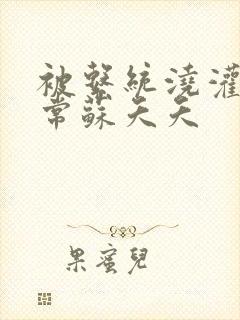 被繫統澆灌
常蘇夭夭
果蜜兒